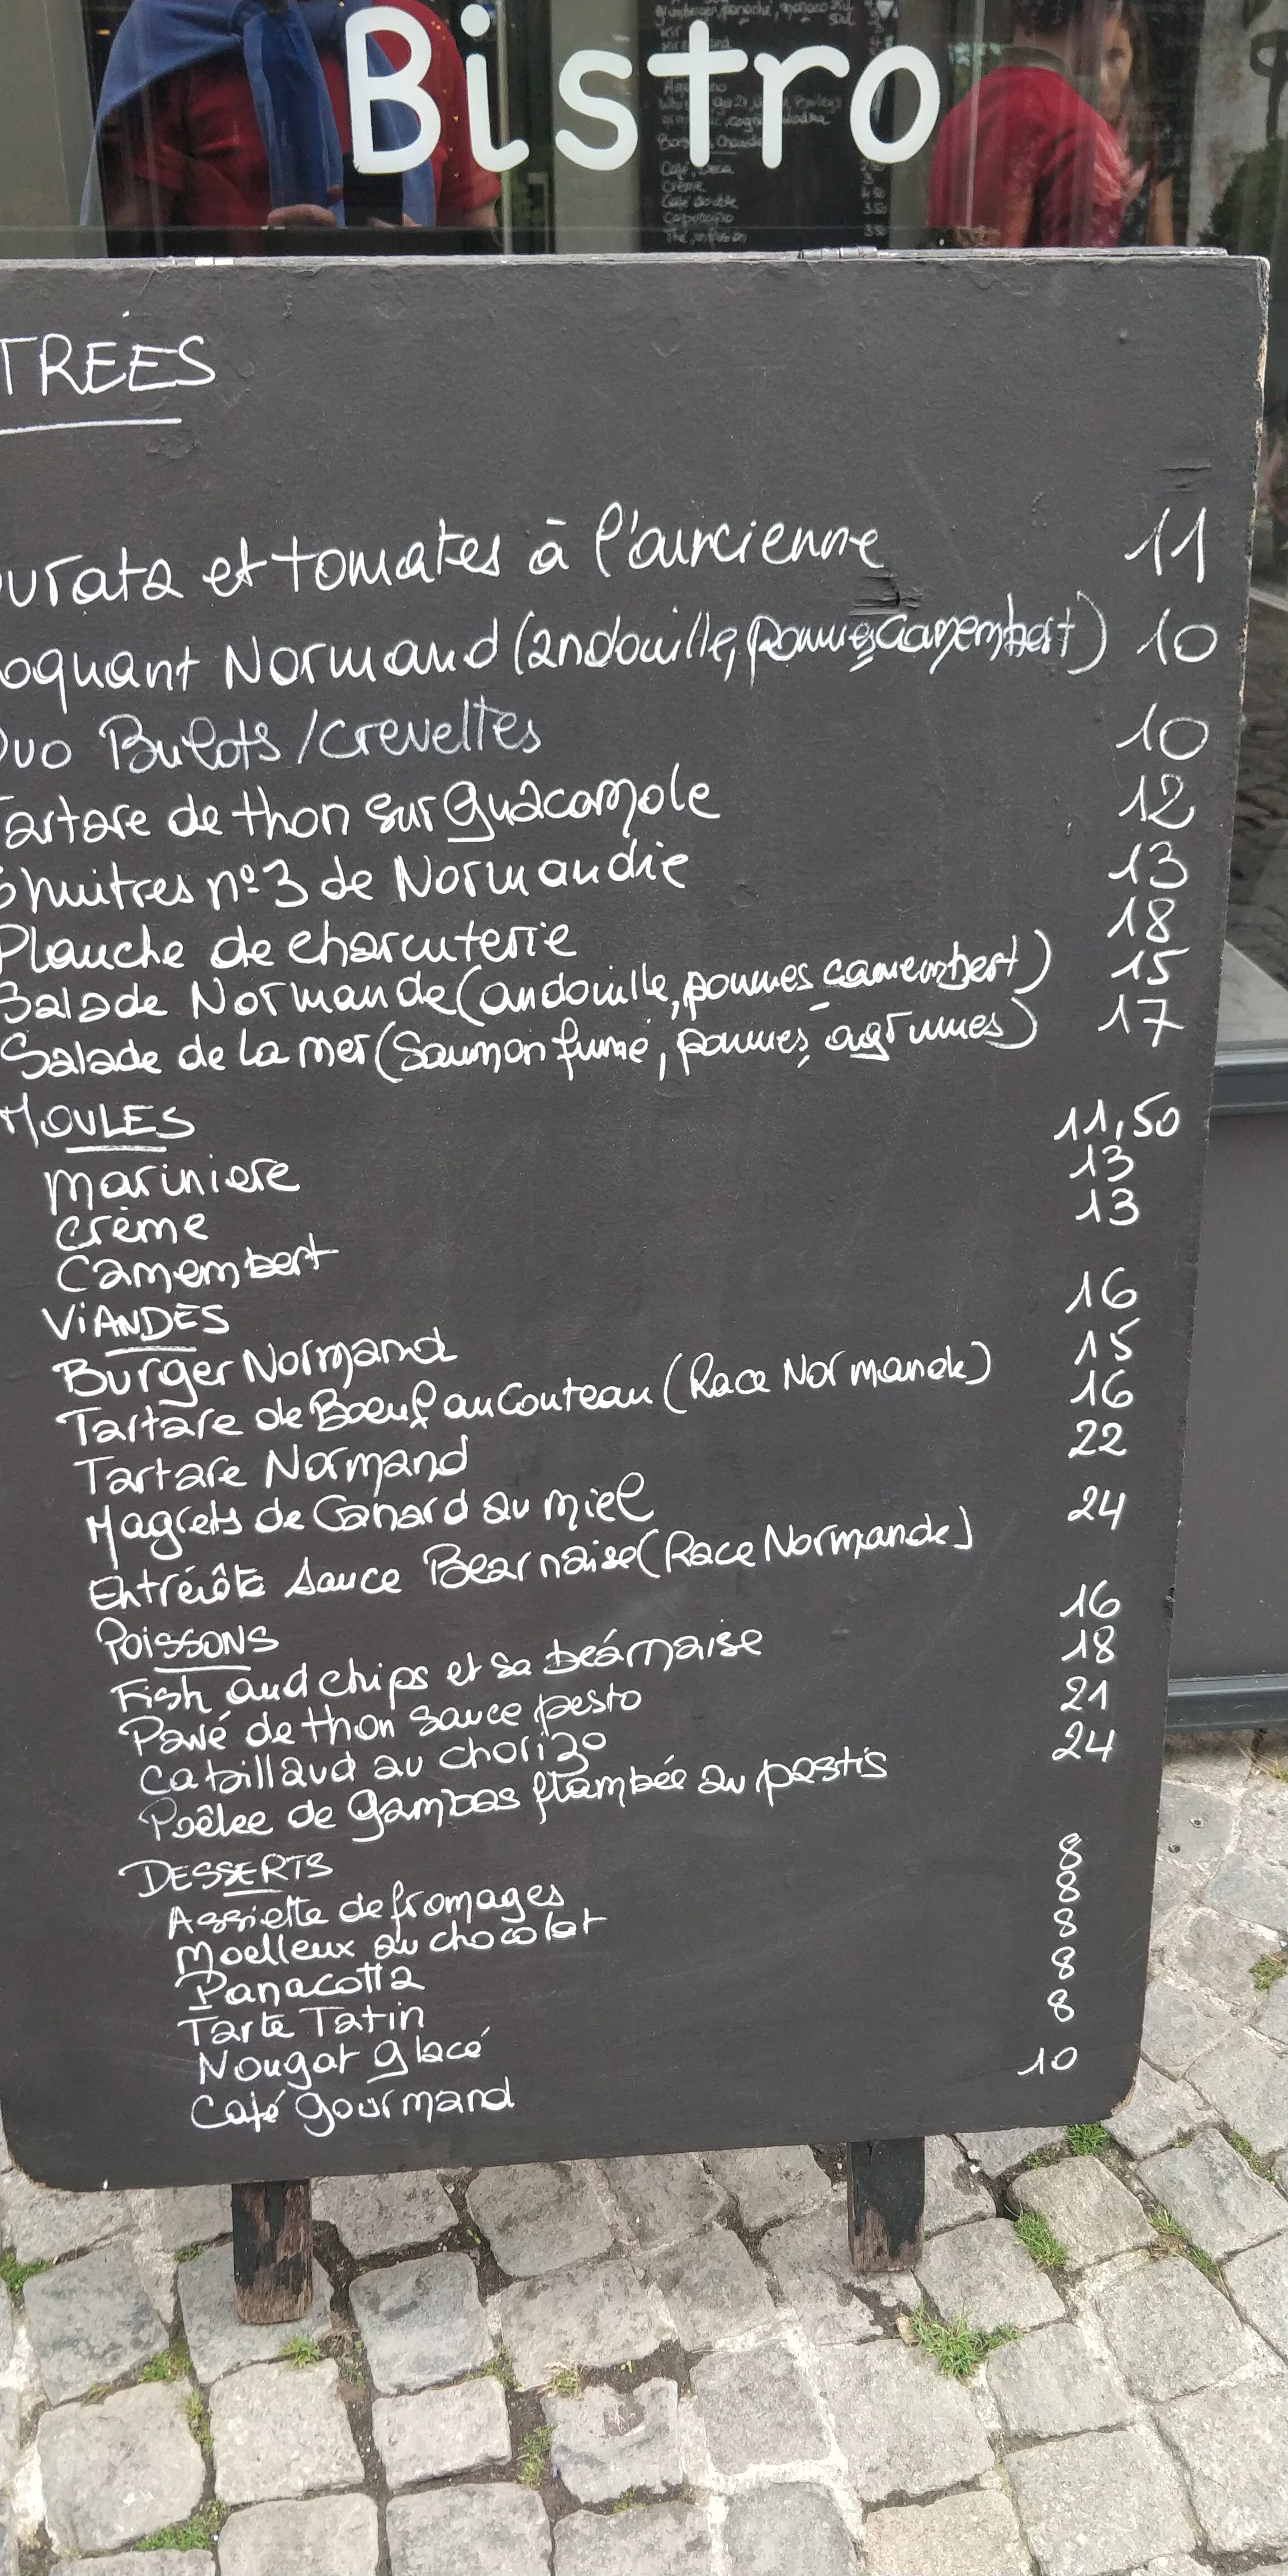 Bistro
Café, Deca
Crème
Café double
Capuccino
Thé, infusion 350
TRÉES
urata et tomates à l'ancienne 11
oquant Normand (andouille, pommes camembert) 10
Duo Bulots / crevettes 10
Tartare de thon sur guacamole 12
6 huitres n°3 de Normandie 13
Planche de charcuterie 18
Salade Normande (andouille, pommes camembert) 15
Salade de la mer (Saumon fumé, pommes, agrumes) 17
MOULES
marinière 11,50
crème 13
Camembert 13
ViANDES
Burger Normand 16
Tartare de Boeuf au Couteau (Race Normande) 15
Tartare Normand 16
Magrets de Canard au miel 22
Entrécôte sauce Bearnaise (Race Normande) 24
POISSONS
Fish and chips et sa béarnaise 16
Pavé de thon sauce pesto 18
Cabillaud au chorizo 21
Poêlee de gambas flambée au pastis 24
DESSERTS
Assiette de fromages 8
Moelleux au chocolat 8
Panacotta 8
Tarte Tatin 8
Nougat glacé 8
Café gourmand 10